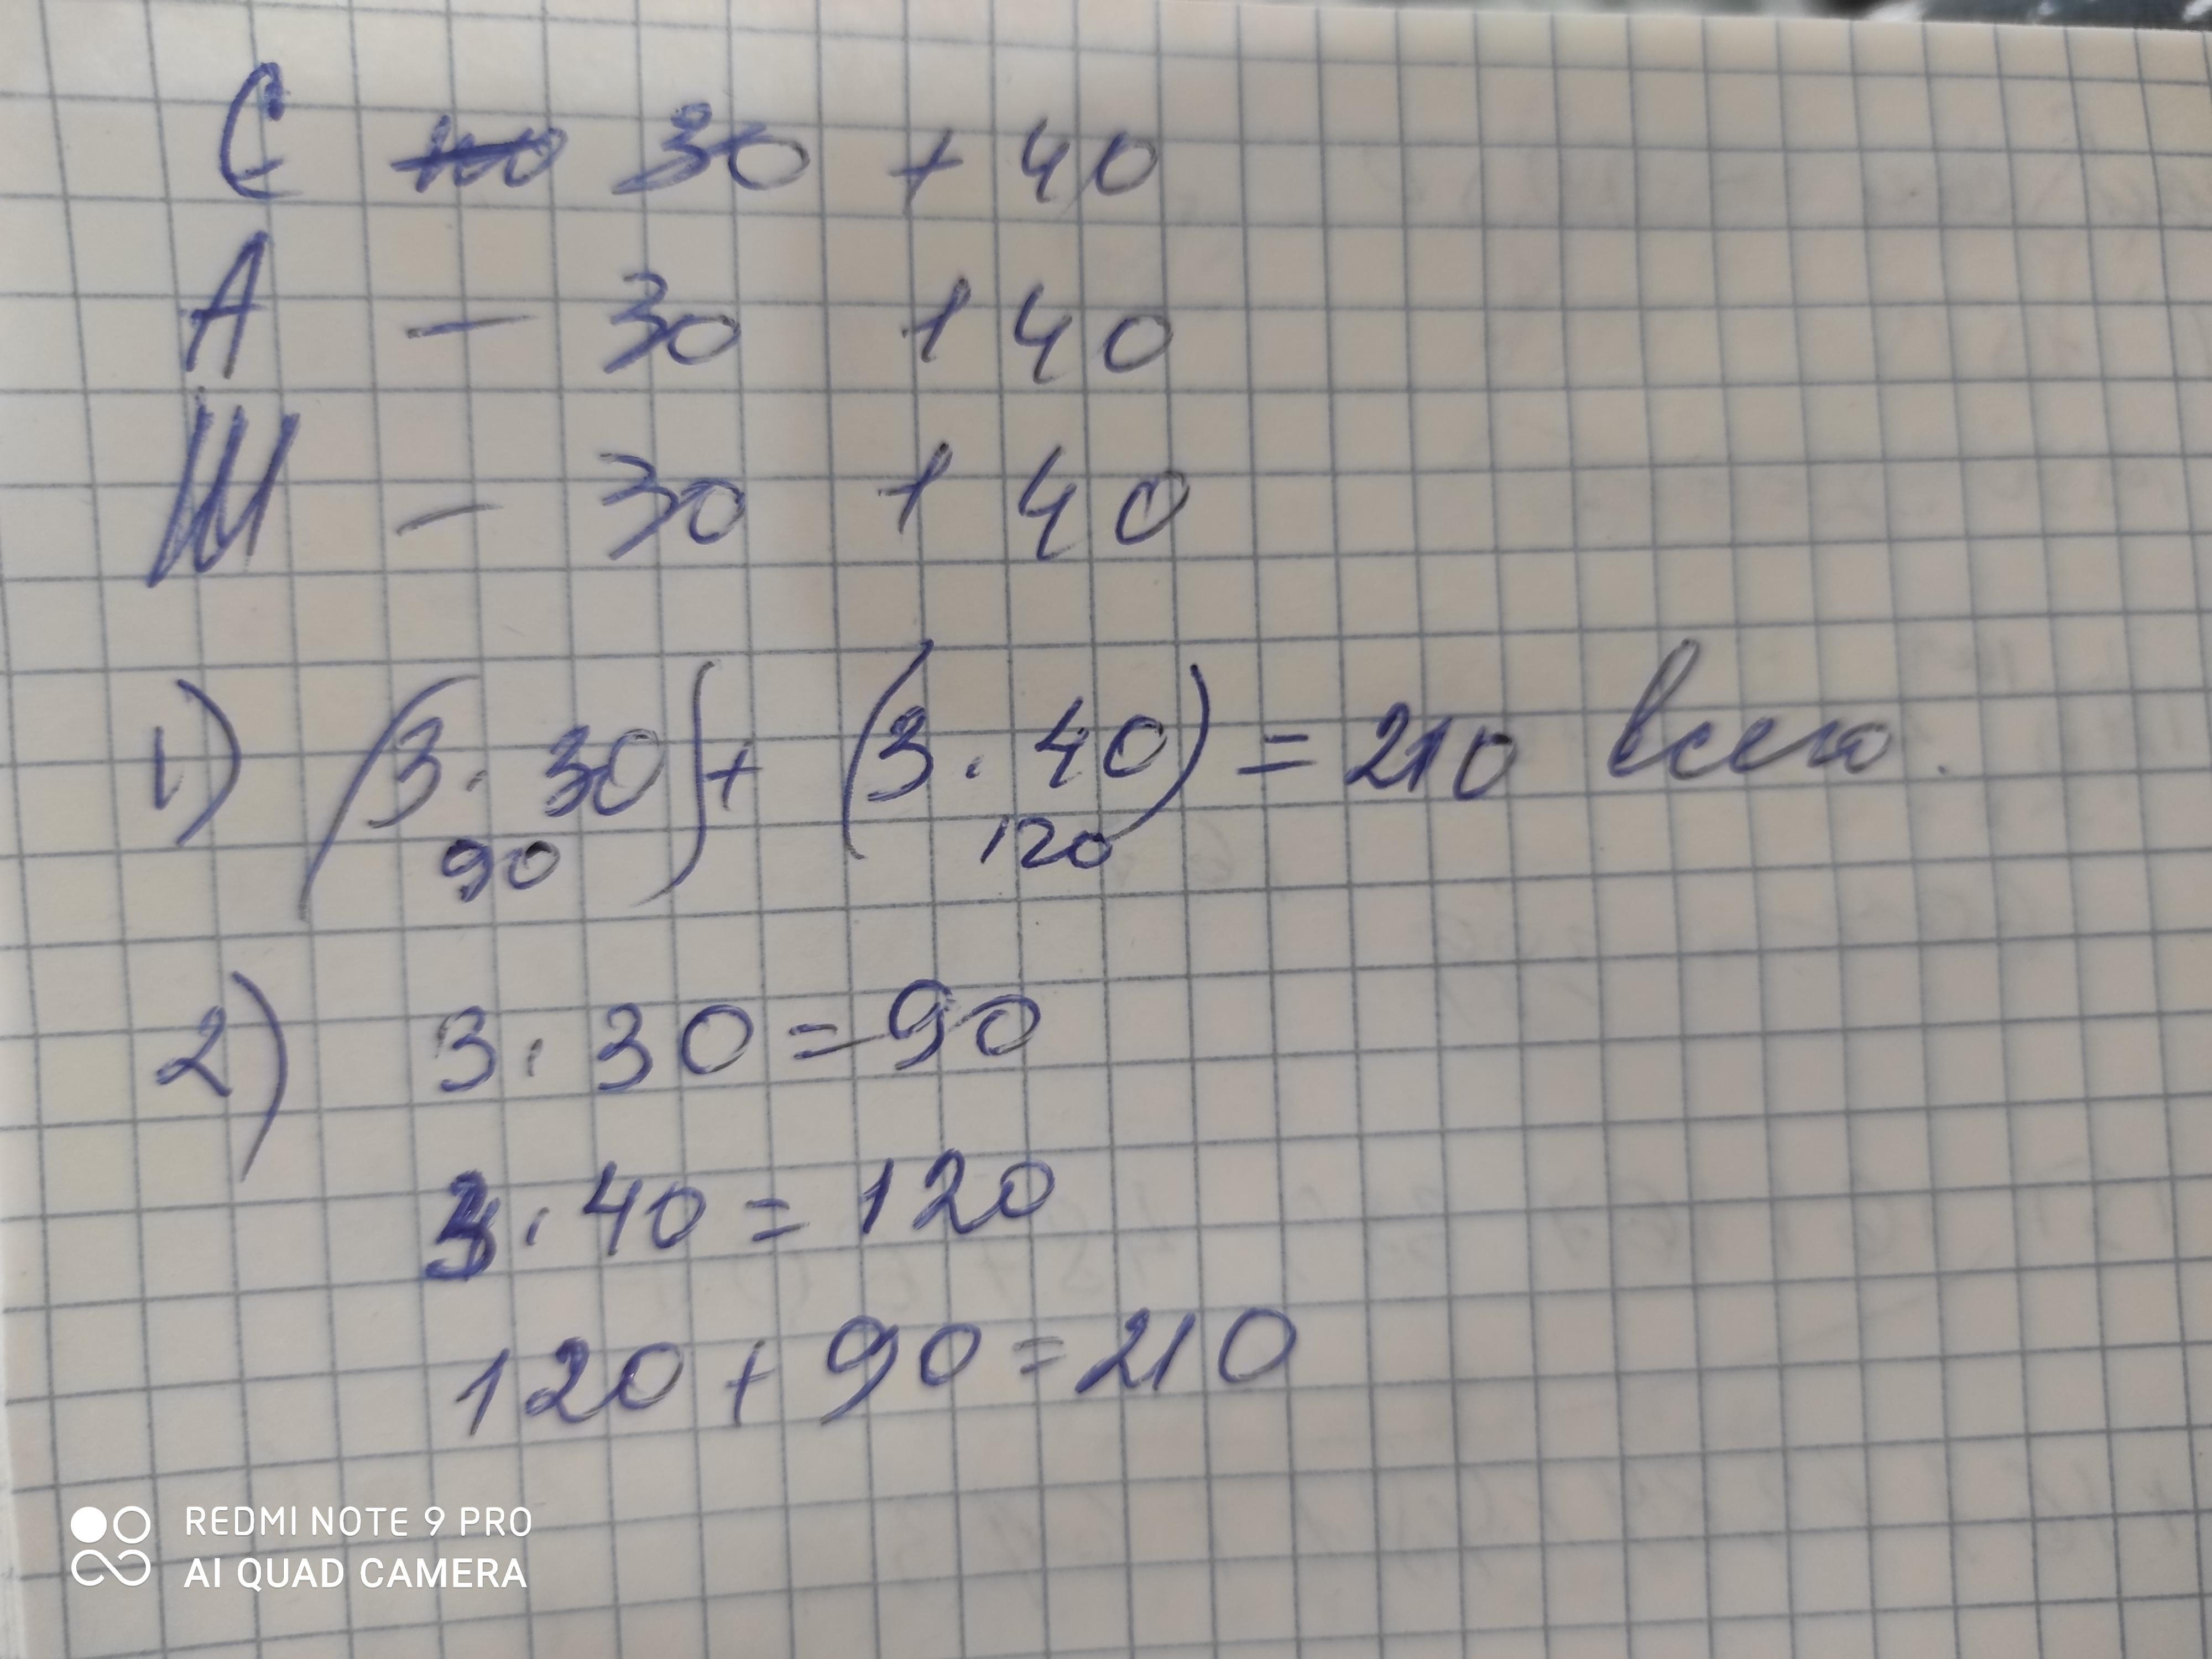 С 30 + 40
А - 30 + 40
Ш - 30 + 40
1) (3 · 30) + (3 · 40) = 210 всего.
90 120
2) 3 · 30 = 90
3 · 40 = 120
120 + 90 = 210
REDMI NOTE 9 PRO
AI QUAD CAMERA